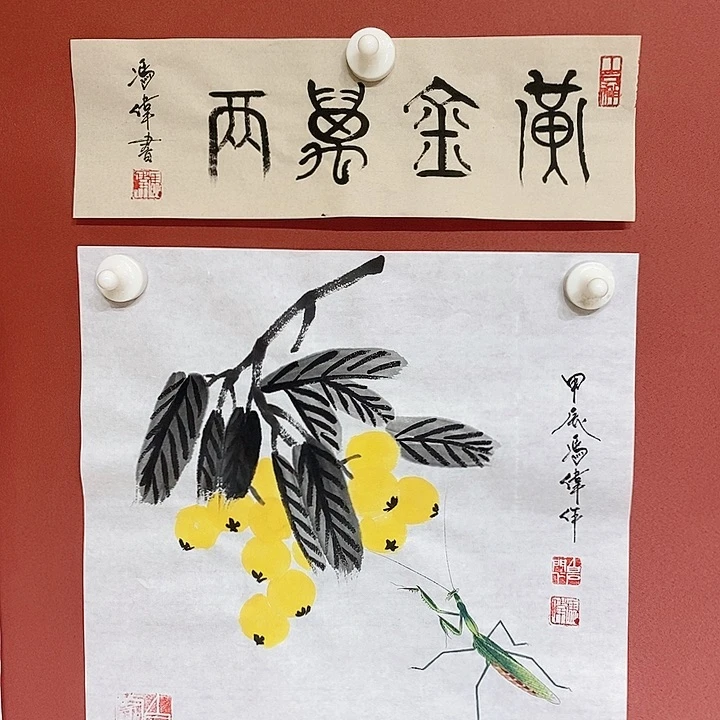 黃金萬兩
馮偉書
甲辰馮偉作